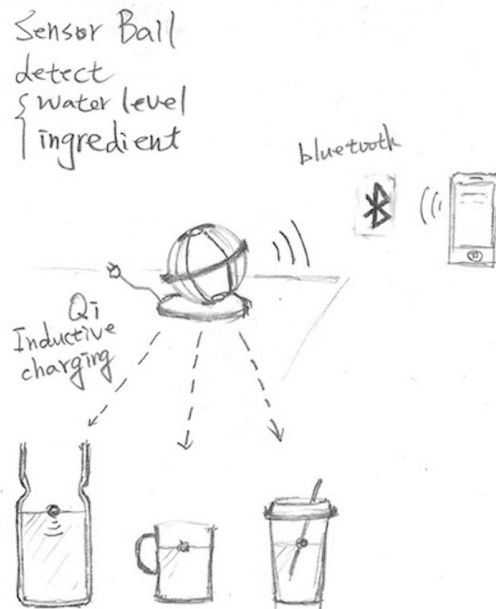 Sensor Ball
detect
water level
ingredient
bluetooth
Qi
Inductive
charging